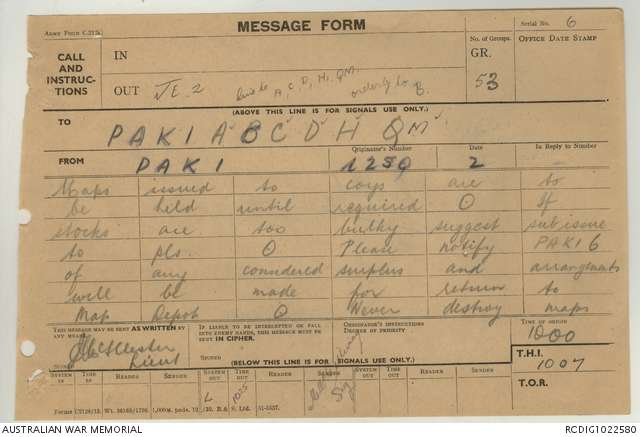 Army Form C.2128
MESSAGE FORM
Serial No. 6
CALL AND INSTRUCTIONS
IN
OUT JE. 2
Live to A, C, D, H, QM.
orderly to B.
No. of Groups.
GR.
53
OFFICE DATE STAMP
(ABOVE THIS LINE IS FOR SIGNALS USE ONLY.)
TO PAKI A B C D H QM
FROM PAKI
Originator's Number 1250
Date 2
In Reply to Number
Maps issued to coys are to
be held until required O If
stocks are too bulky suggest subissue
to pls. O Please notify PAKI 6
of any considered surplus and arrangements
will be made for return to
Map Depot O Never destroy maps
THIS MESSAGE MAY BE SENT AS WRITTEN BY ANY MEANS.
Lieut
IF LIABLE TO BE INTERCEPTED OR FALL INTO ENEMY HANDS, THIS MESSAGE MUST BE SENT IN CIPHER.
SIGNED
ORIGINATOR'S INSTRUCTIONS
DEGREE OF PRIORITY
TIME OF ORIGIN
1000
(BELOW THIS LINE IS FOR SIGNALS USE ONLY.)
T.H.I. 1007
T.O.R.
SYSTEM IN TIME IN READER SENDER SYSTEM OUT TIME OUT READER SENDER SYSTEM OUT TIME OUT READER SENDER
L
AUSTRALIAN WAR MEMORIAL
RCDIG1022580